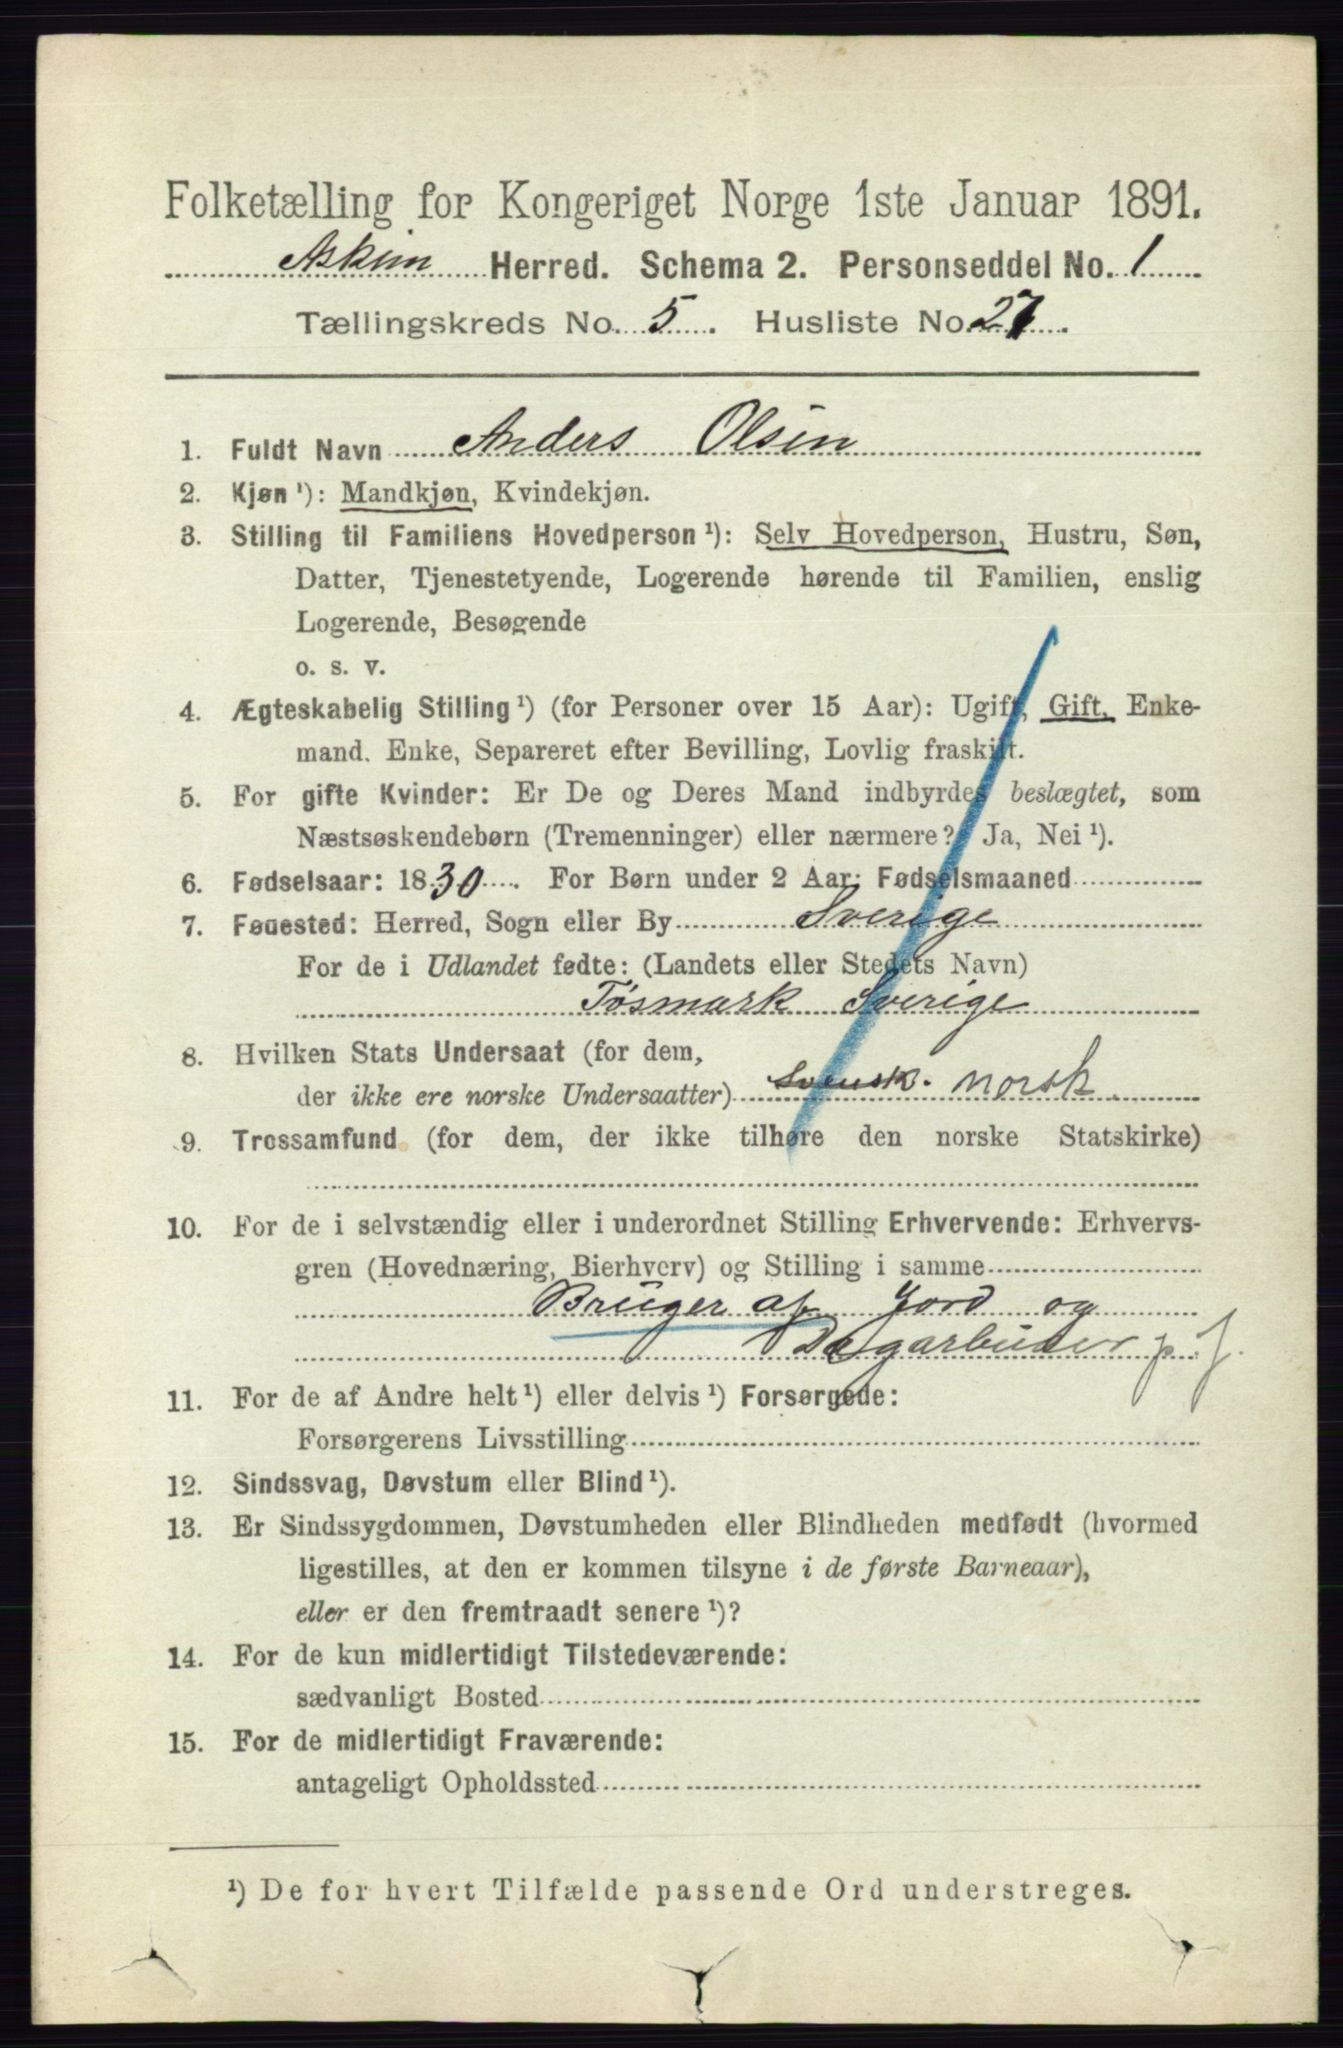 Folketælling for Kongeriget Norge 1ste Januar 1891.
Askim Herred. Schema 2. Personseddel No. 1
Tællingskreds No. 5. Husliste No. 27.
1. Fuldt Navn Anders Olsen
2. Kjøn ¹): Mandkjøn, Kvindekjøn.
3. Stilling til Familiens Hovedperson ¹): Selv Hovedperson, Hustru, Søn,
Datter, Tjenestetyende, Logerende hørende til Familien, enslig
Logerende, Besøgende
o. s. v.
4. Ægteskabelig Stilling ¹) (for Personer over 15 Aar): Ugift, Gift, Enke-
mand. Enke, Separeret efter Bevilling, Lovlig fraskilt.
5. For gifte Kvinder: Er De og Deres Mand indbyrdes beslægtet, som
Næstsøskendebørn (Tremenninger) eller nærmere? Ja, Nei ¹).
6. Fødselsaar: 1830. For Børn under 2 Aar: Fødselsmaaned
7. Føuested: Herred, Sogn eller By Sverige
For de i Udlandet fødte: (Landets eller Stedets Navn)
Tøsmark Sverige
8. Hvilken Stats Undersaat (for dem,
der ikke ere norske Undersaatter) Svensk. norsk
9. Trossamfund (for dem, der ikke tilhøre den norske Statskirke)
10. For de i selvstændig eller i underordnet Stilling Erhvervende: Erhvervs-
gren (Hovednæring, Bierhverv) og Stilling i samme
Bruger af Jord og
Dagarbuder p. J.
11. For de af Andre helt ¹) eller delvis ¹) Forsørgede:
Forsørgerens Livsstilling
12. Sindssvag, Døvstum eller Blind ¹).
13. Er Sindssygdommen, Døvstumheden eller Blindheden medfødt (hvormed
ligestilles, at den er kommen tilsyne i de første Barneaar),
eller er den fremtraadt senere ¹)?
14. For de kun midlertidigt Tilstedeværende:
sædvanligt Bosted
15. For de midlertidigt Fraværende:
antageligt Opholdssted
¹) De for hvert Tilfælde passende Ord understreges.